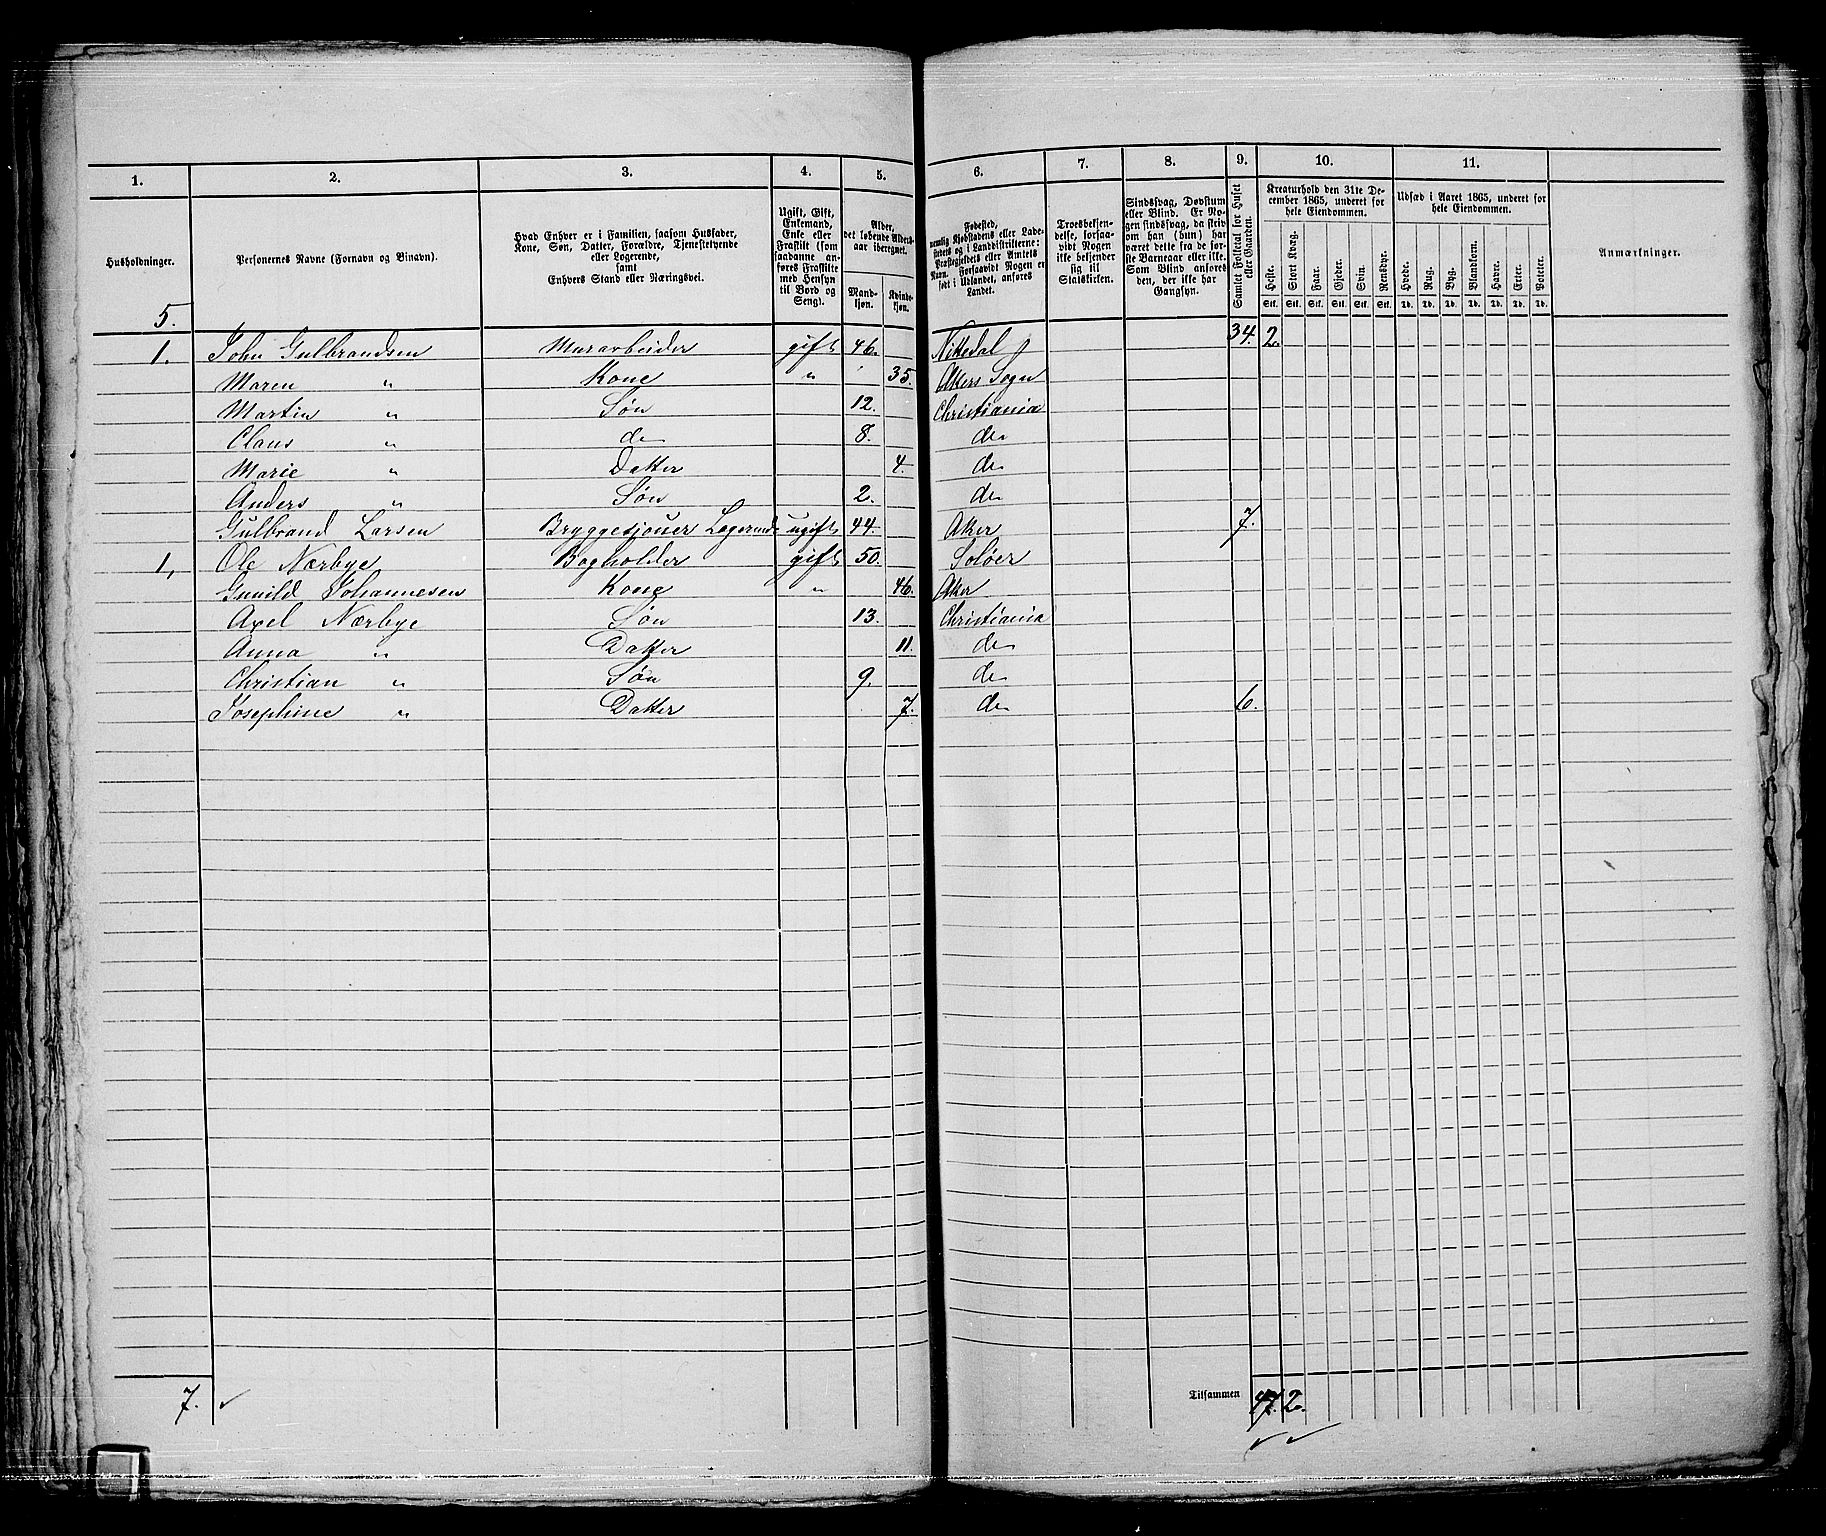 1. 2. 3. 4. 5. 6. 7. 8. 9. 10. 11.
Husholdninger.
Personernes Navne (Fornavn og Binavn).
Hvad Enhver er i Familien, saasom Husfader,
Kone, Søn, Datter, Forældre, Tjenestetyende
eller Logerende,
samt
Enhvers Stand eller Næringsvei.
Ugift, Gift,
Enkemand,
Enke eller
Fraskilt (som
saadanne an-
føres Fraskilte
med Hensyn
til Bord og
Seng).
Alder,
det løbende Alders-
aar iberegnet.
Mand-
kjøn.
Kvinde-
kjøn.
Fødested,
nemlig Kjøbstadens eller Lade-
stedets og i Landdistrikterne:
Præstegjeldets eller Amtets
Navn. Forsaavidt Nogen er
født i Udlandet, anføres
Landet.
Troesbekjen-
delse, forsaa-
vidt Nogen
ikke bekjender
sig til
Statskirken.
Sindssvag, Døvstum
eller Blind. Er No-
gen sindssvag, da skriv
om han (hun) har
været dette fra de før-
ste Barneaar eller ikke.
Som Blind anføres
den, der ikke har
Gangsyn.
Samlet Folketal for Huset
eller Gaarden.
Kreaturhold den 31te De-
cember 1865, underet for
hele Eiendommen.
Heste. Stort Kvæg. Faar. Gjeder. Svin. Rensdyr.
Stk. Stk. Stk. Stk. Stk. Stk.
Udsæd i Aaret 1865, underet for
hele Eiendommen.
Hvede. Rug. Byg. Blandkorn. Havre. Erter. Poteter.
Td. Td. Td. Td. Td. Td. Td.
Anmærkninger.
5. 34. 2.
1. John Gulbrandsen Murarbeider gift 46. Nittedal
Maren " Kone " 35. Akers Sogn
Martin " Søn 12. Christiania
Claus " do 8. do
Marie " Datter 4. do
Anders " Søn 2. do
Gulbrand Larsen Bryggesjouer Logerende ugift 44. Aker 7.
1, Ole Nærbye Bogholder gift 50. Soløer
Gunild Johannesen Kone " 46. Aker
Axel Nærbye Søn 13. Christiania
Anna " Datter 11. do
Christian " Søn 9. do
Josephine " Datter 7. do 6.
7. ✓ Tilsammen 47. 2.
✓ ✓